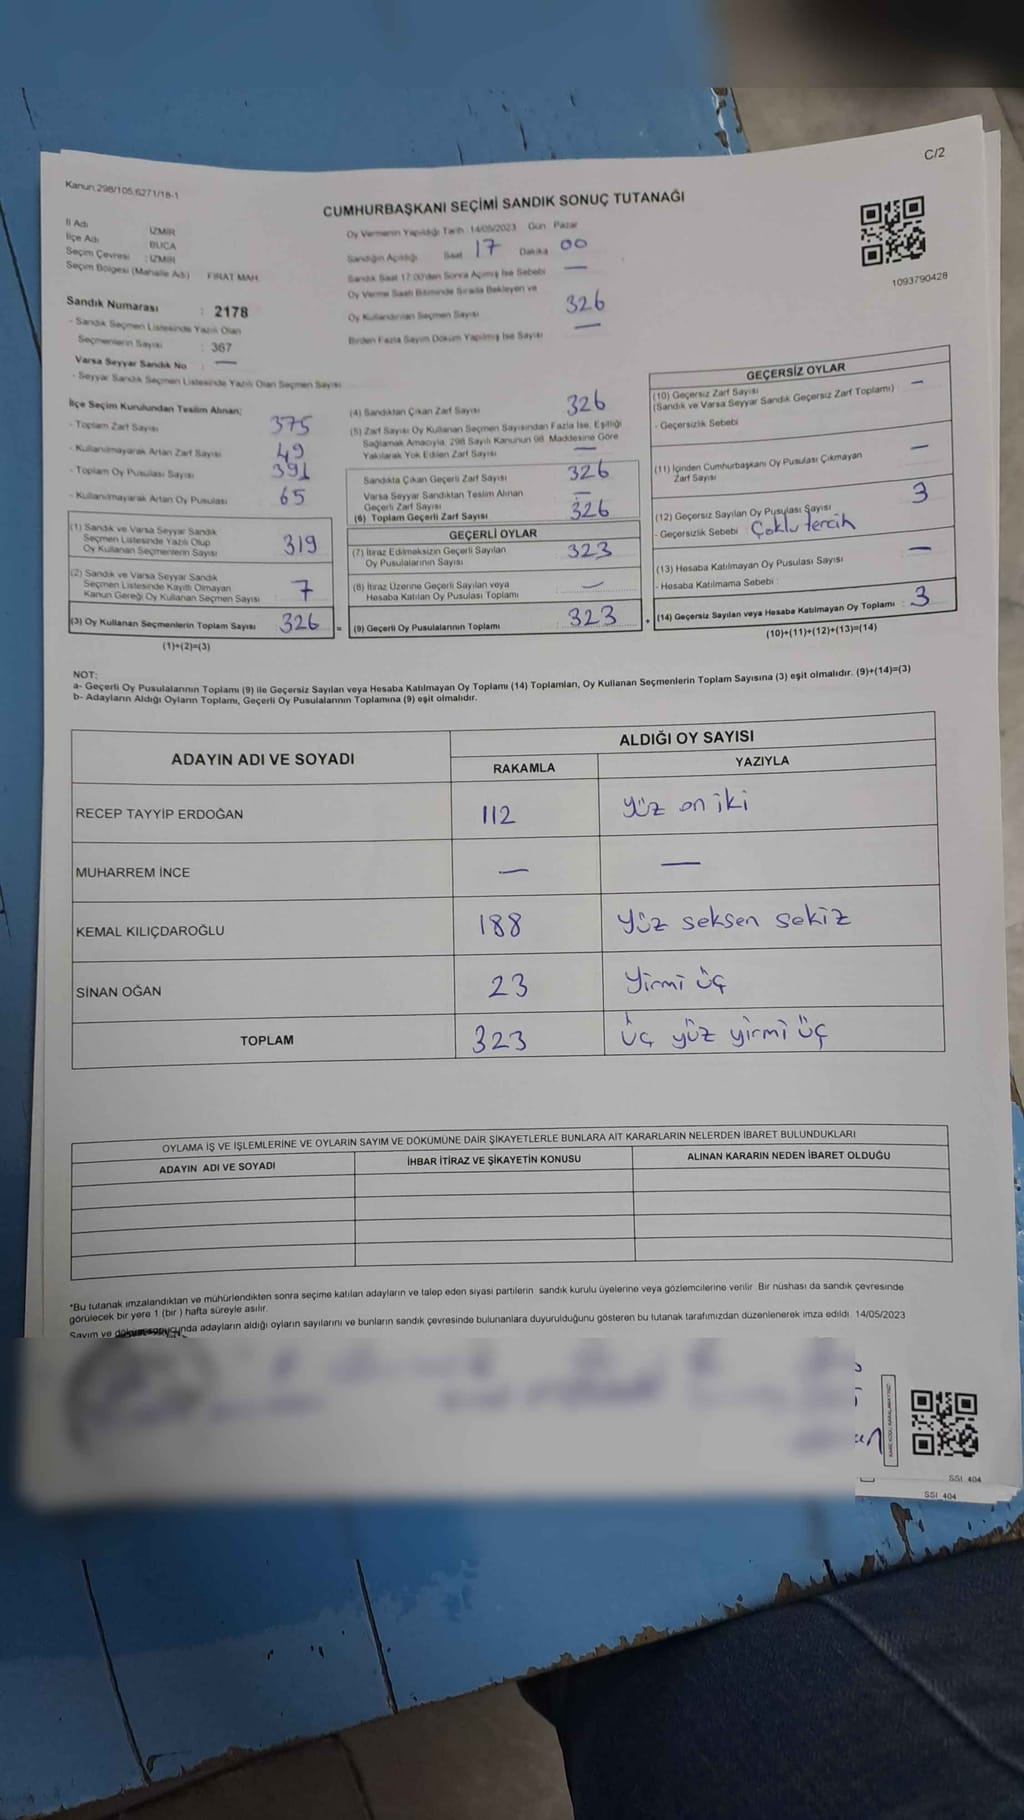 C/2
Kanun;298/105,6271/18-1
CUMHURBAŞKANI SEÇİMİ SANDIK SONUÇ TUTANAĞI
1093790428
İl Adı : İZMİR
İlçe Adı : BUCA
Seçim Çevresi : İZMİR
Seçim Bölgesi (Mahalle Adı) FIRAT MAH.
Oy Vermenin Yapıldığı Tarih 14/05/2023 Gün Pazar
Sandığın Açıldığı Saat 17 Dakika 00
Sandık Saat 17:00'den Sonra Açılmış İse Sebebi —
Oy Verme Saati Bitiminde Sırada Bekleyen ve
Oy Kullandırılan Seçmen Sayısı 326
Birden Fazla Sayım Döküm Yapılmış İse Sayısı —
Sandık Numarası : 2178
- Sandık Seçmen Listesinde Yazılı Olan
Seçmenlerin Sayısı : 367
Varsa Seyyar Sandık No : —
- Seyyar Sandık Seçmen Listesinde Yazılı Olan Seçmen Sayısı
İlçe Seçim Kurulundan Teslim Alınan;
- Toplam Zarf Sayısı 375
- Kullanılmayarak Artan Zarf Sayısı 49
- Toplam Oy Pusulası Sayısı 391
- Kullanılmayarak Artan Oy Pusulası 65
(1) Sandık ve Varsa Seyyar Sandık
Seçmen Listesinde Yazılı Olup
Oy Kullanan Seçmenlerin Sayısı 319
(2) Sandık ve Varsa Seyyar Sandık
Seçmen Listesinde Kayıtlı Olmayan
Kanun Gereği Oy Kullanan Seçmen Sayısı 7
(3) Oy Kullanan Seçmenlerin Toplam Sayısı 326 =
(1)+(2)=(3)
(4) Sandıktan Çıkan Zarf Sayısı 326
(5) Zarf Sayısı Oy Kullanan Seçmen Sayısından Fazla İse, Eşitliği
Sağlamak Amacıyla, 298 Sayılı Kanunun 98. Maddesine Göre
Yakılarak Yok Edilen Zarf Sayısı —
Sandıkta Çıkan Geçerli Zarf Sayısı 326
Varsa Seyyar Sandıktan Teslim Alınan
Geçerli Zarf Sayısı —
(6) Toplam Geçerli Zarf Sayısı 326
GEÇERLİ OYLAR
(7) İtiraz Edilmeksizin Geçerli Sayılan
Oy Pusulalarının Sayısı 323
(8) İtiraz Üzerine Geçerli Sayılan veya
Hesaba Katılan Oy Pusulası Toplamı —
(9) Geçerli Oy Pusulalarının Toplamı : 323 +
GEÇERSİZ OYLAR
(10) Geçersiz Zarf Sayısı
(Sandık ve Varsa Seyyar Sandık Geçersiz Zarf Toplamı) —
- Geçersizlik Sebebi
(11) İçinden Cumhurbaşkanı Oy Pusulası Çıkmayan
Zarf Sayısı —
(12) Geçersiz Sayılan Oy Pusulası Sayısı 3
- Geçersizlik Sebebi Çoklu tercih
(13) Hesaba Katılmayan Oy Pusulası Sayısı —
- Hesaba Katılmama Sebebi :
(14) Geçersiz Sayılan veya Hesaba Katılmayan Oy Toplamı : 3
(10)+(11)+(12)+(13)=(14)
NOT:
a- Geçerli Oy Pusulalarının Toplamı (9) ile Geçersiz Sayılan veya Hesaba Katılmayan Oy Toplamı (14) Toplamları, Oy Kullanan Seçmenlerin Toplam Sayısına (3) eşit olmalıdır. (9)+(14)=(3)
b- Adayların Aldığı Oyların Toplamı, Geçerli Oy Pusulalarının Toplamına (9) eşit olmalıdır.
ADAYIN ADI VE SOYADI ALDIĞI OY SAYISI
RAKAMLA YAZIYLA
RECEP TAYYİP ERDOĞAN 112 Yüz on iki
MUHARREM İNCE — —
KEMAL KILIÇDAROĞLU 188 Yüz seksen sekiz
SİNAN OĞAN 23 Yirmi üç
TOPLAM 323 üç yüz yirmi üç
OYLAMA İŞ VE İŞLEMLERİNE VE OYLARIN SAYIM VE DÖKÜMÜNE DAİR ŞİKAYETLERLE BUNLARA AİT KARARLARIN NELERDEN İBARET BULUNDUKLARI
ADAYIN ADI VE SOYADI İHBAR İTİRAZ VE ŞİKAYETİN KONUSU ALINAN KARARIN NEDEN İBARET OLDUĞU
*Bu tutanak imzalandıktan ve mühürlendikten sonra seçime katılan adayların ve talep eden siyasi partilerin sandık kurulu üyelerine veya gözlemcilerine verilir. Bir nüshası da sandık çevresinde
görülecek bir yere 1 (bir ) hafta süreyle asılır.
Sayım ve döküm sonucunda adayların aldığı oyların sayılarını ve bunların sandık çevresinde bulunanlara duyurulduğunu gösteren bu tutanak tarafımızdan düzenlenerek imza edildi. 14/05/2023
SSI_404
SSI_404